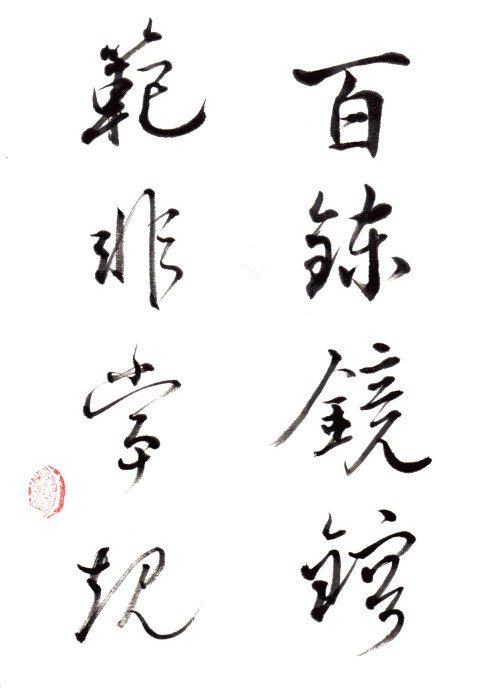 百鍊鏡鎔
範非常規